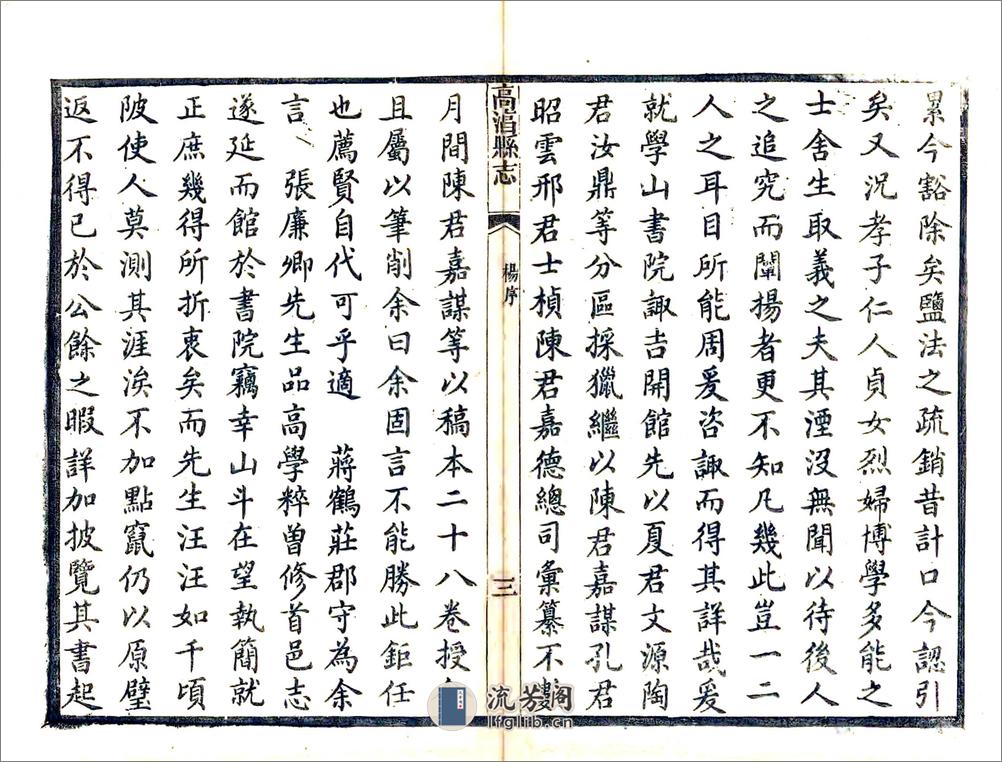 累今豁除矣鹽法之疏銷昔計口今認引
矣又況孝子仁人貞女烈婦博學多能之
士舍生取義之夫其湮沒無聞以待後人
之追究而闡揚者更不知凡幾此豈一二
人之耳目所能周爰咨諏而得其詳哉爰
就學山書院諏吉開館先以夏君文源陶
君汝鼎等分區採獵繼以陳君嘉謀孔君
昭雲邢君士楨陳君嘉德總司彙纂不數
高湻縣志
楊序
三
月間陳君嘉謀等以稿本二十八卷授余
且屬以筆削余曰余固言不能勝此鉅任
也薦賢自代可乎適 蔣鶴莊郡守為余
言 張廉卿先生品高學粹曾修首邑志
遂延而館於書院竊幸山斗在望執簡就
正庶幾得所折衷矣而先生汪汪如千頃
陂使人莫測其涯涘不加點竄仍以原璧
返不得已於公餘之暇詳加披覽其書起
流芳阁
lfglib.cn